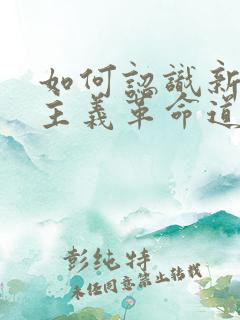 如何認識新
主義革命道
彭纯特
未经同意禁止转载